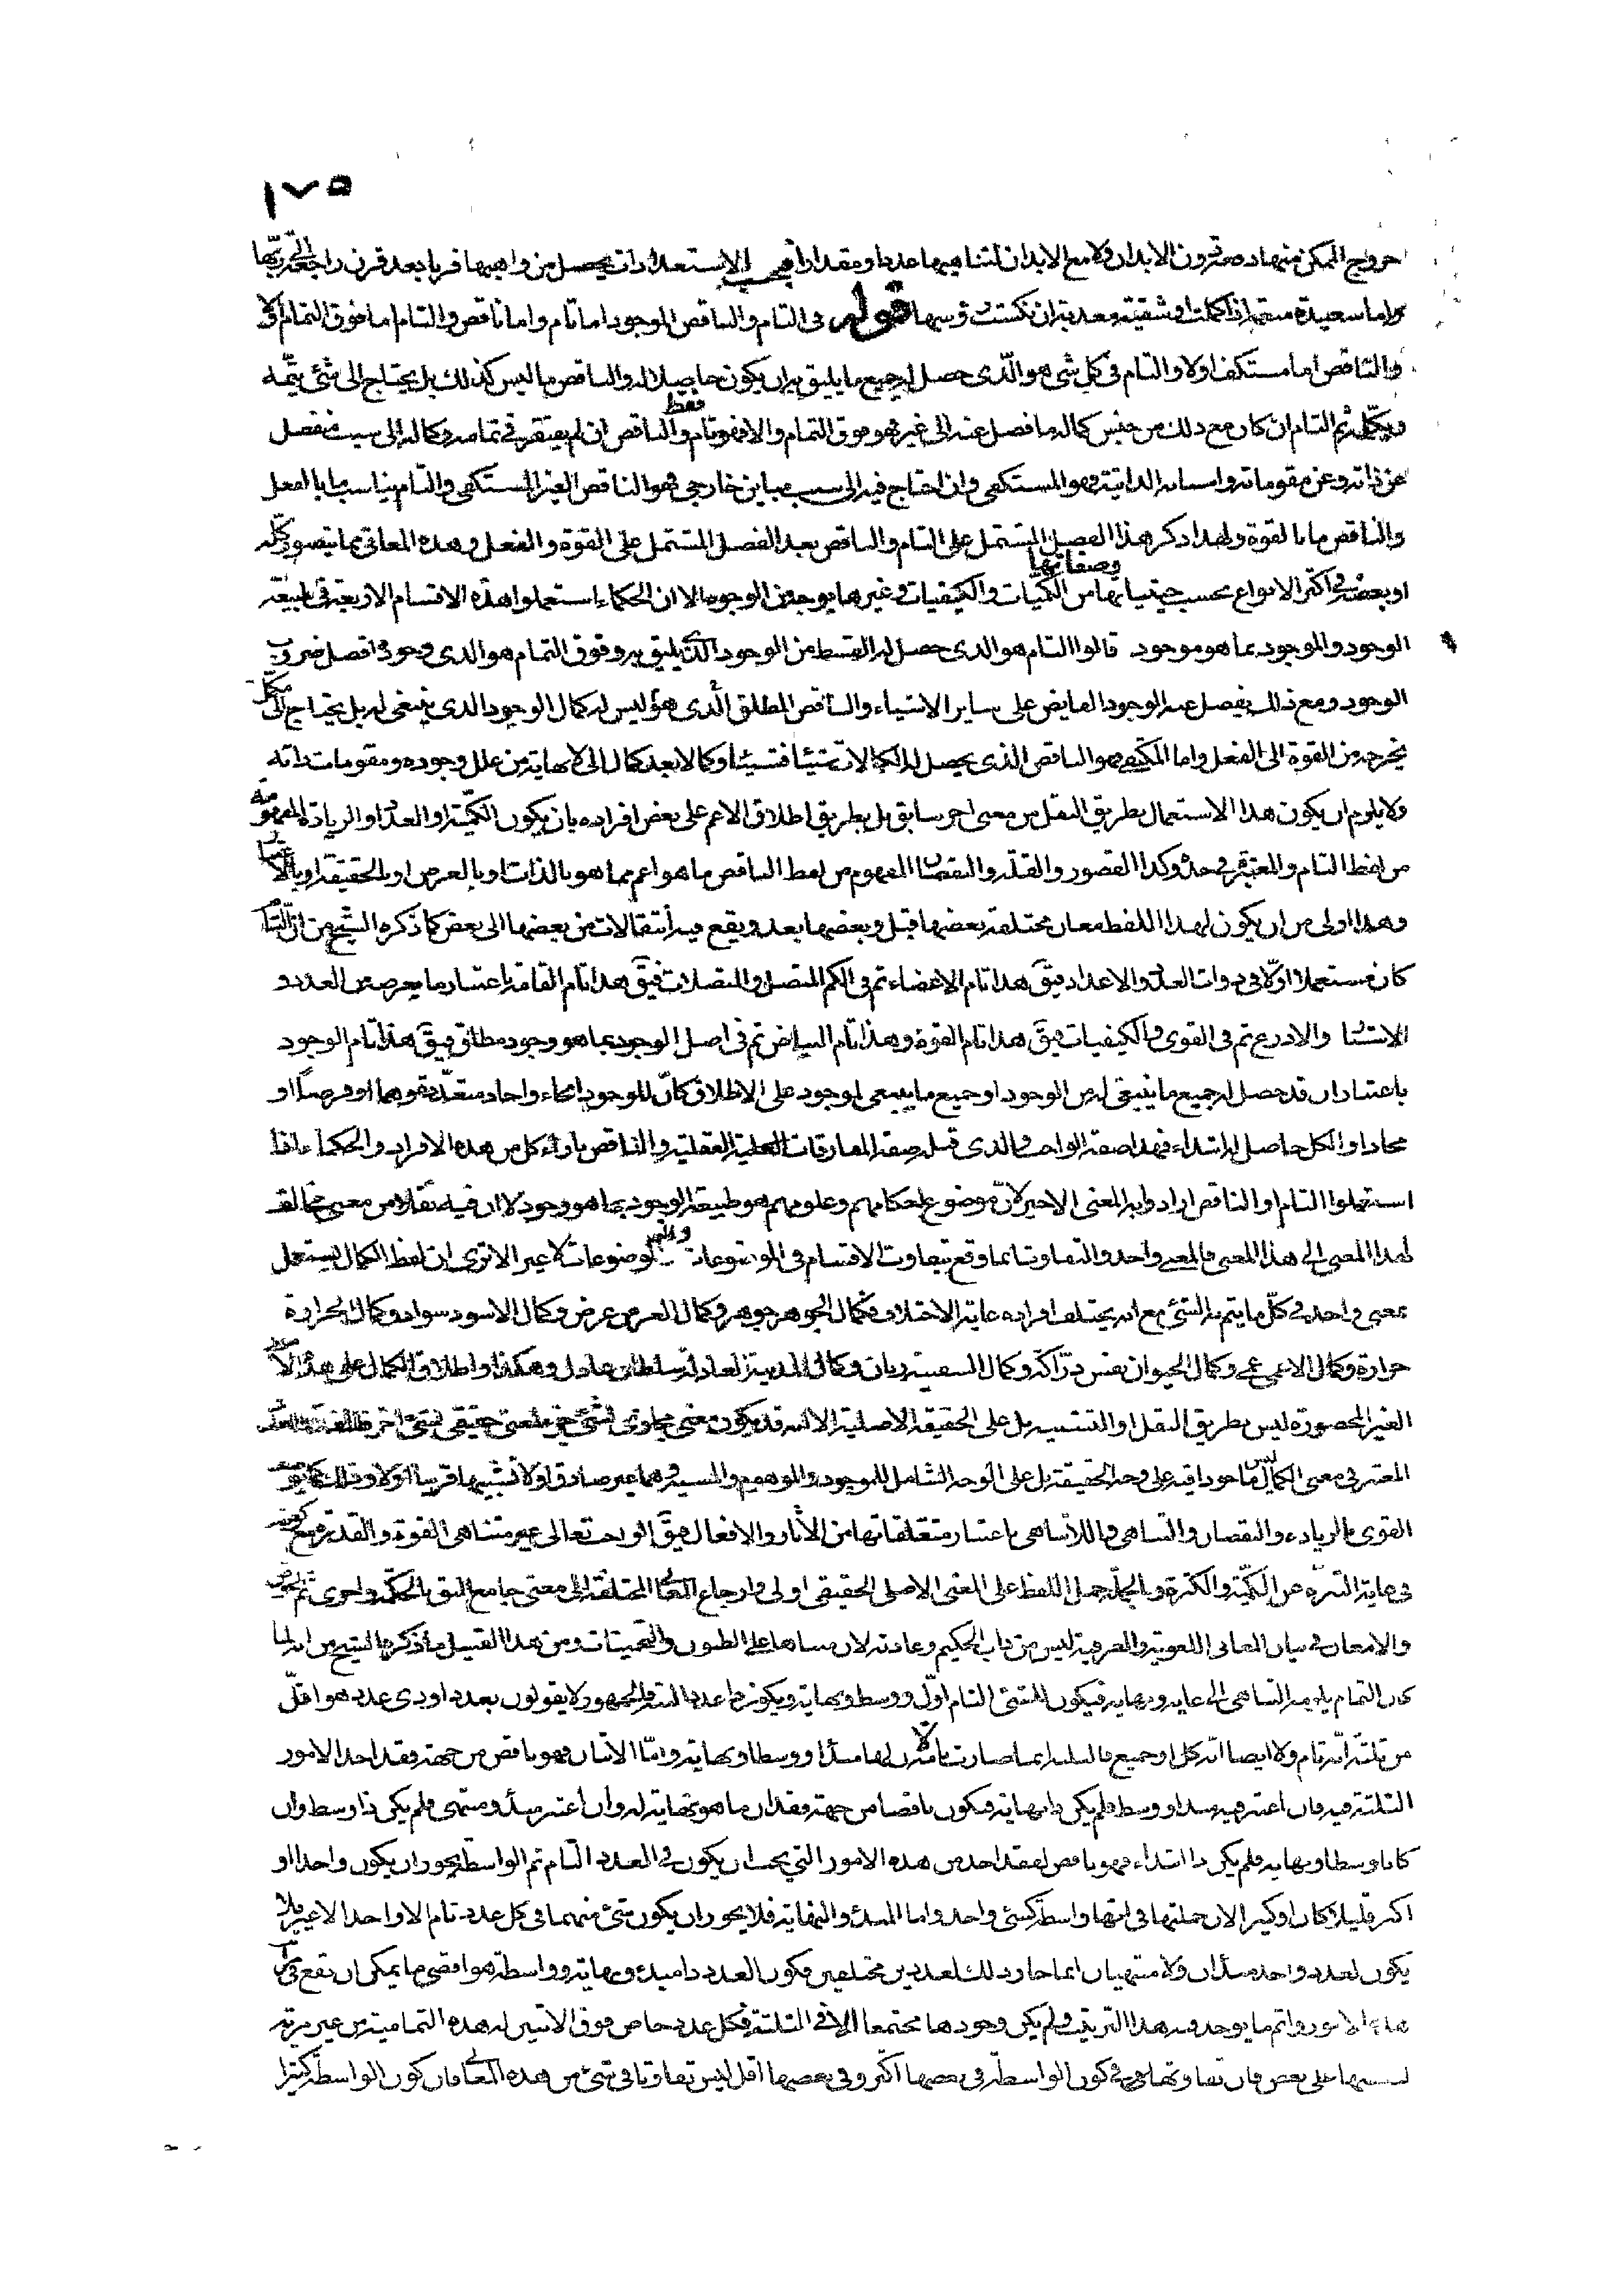 ١٧٥
خروج الممكن منها دفعة قرون الابدان ولا مع الابدان لتناهيها عددا ومقدارا فبحسب الاستعدادات يحصل من واهبها قرنا بعد قرن راجعة الى ربّها
واما سعيدة منعمة اذا كملت او شقيّة معذبة ان نكست رؤسها قوله في التام والناقص الموجود اما تام واما ناقص والتام اما فوق التمام او لا
والناقص اما مستكف او لا والتام في كل شئ هو الّذى حصل له جميع ما يليق به ان يكون حاصلا له والناقص ما ليس كذلك بل يحتاج الى شئ يتمّه
ويكمّله ثم التام ان كان مع ذلك من جنس كماله ما فضل عنه الى غيره فهو فوق التمام والا فهو تام فقط والناقص ان لم يفتقر في تمامه وكماله الى سبب منفصل
عن ذاته وعن مقوماته واسبابه الذاتية فهو المستكفى وان احتاج فيه الى سبب مباين خارجى فهو الناقص الغير المستكفى والتام يناسب ما بالفعل
والناقص ما بالقوة ولهذا ذكر هذا الفصل المشتمل على التام والناقص بعد الفصل المشتمل على القوة والفعل وهذه المعانى مما يتصور كلّه
او بعضه في اكثر الانواع بحسب حيثياتها وصفاتها من الكميّات والكيفيات وغيرها بوجه من الوجوه الا ان الحكماء استعملوا هذه الاقسام الاربعة في طبيعة
الوجود والموجود بما هو موجود قالوا التام هو الذى حصل له القسط من الوجود الذى يليق به وفوق التمام هو الذى وجوده افضل ضروب
الوجود ومع ذلك يفضل عنه الوجود الفايض على ساير الاشياء والناقص المطلق الّذى هو ليس له كمال الوجود الذى ينبغى له بل يحتاج الى مكمّل
يخرجه من القوة الى الفعل واما المكتفى فهو الناقص الذى يحصل له الكمالات شيئا فشيئا وكمالا بعد كمال الى لا نهاية من علل وجوده ومقومات ذاته
ولا يلزم ان يكون هذا الاستعمال بطريق النقل من معنى اخر سابق بل بطريق اطلاق الاعم على بعض افراده بان يكون الكميّة او العدد او الزيادة المفهومة
من لفظ التام والمعتبرة في حدّه وكذا القصور والقلّة والنقصان المفهوم من لفظ الناقص ما هو اعم مما هو بالذات او بالعرض او بالحقيقة او بالاعتبار
وهذا اولى من ان يكون لهذا اللفظ معان مختلفة بعضها قبل وبعضها بعد ويقع فيه انتقالات من بعضها الى بعض كما ذكره الشيخ من انّ التام
كان مستعملا اوّلا في ذوات العدد والاعداد فيقَ هذا تام الاعضاء ثم في الكم المتصل والمتصلات فيقَ هذا تام القامة باعتبار ما يعرضه من العدد و
والاذرع ثم في القوى والكيفيات فيقَ هذا تام القوة وهذا تام البياض ثم في اصل الوجود بما هو وجود مطلق فيقَ هذا تام الوجود
باعتبار ان قد حصل له جميع ما ينبغى له من الوجود او جميع ما ينبغى لوجود على الاطلاق كانّ للموجود انحاء واحاد متعدّدة وهما او فرضا او
مجازا والكل حاصل له ابتداء فهذا صفة الواجب والذى قبله صفة المفارقات العقلية والناقص بازاء كل من هذه الافراد والحكماء اذا
استعملوا التام او الناقص ارادوا به المعنى الاخير لانّ موضوع احكامهم وعلومهم هو طبيعة الوجود بما هو وجود لا ان فيه نقلا من معنى مخالف
لهذا المعنى الى هذا المعنى فالمعنى واحد والتفاوت انما وقع بتفاوت الاقسام في الموضوعات لا غير الا ترى ان لفظ الكمال يستعمل
بمعنى واحد في كلّ ما يتم به الشئ مع انه يختلف افراده غاية الاختلاف فكمال الجوهر جوهر وكمال العرض عرض وكمال الاسود سواد وكمال الحرارة
حرارة وكمال الاعمى عمى وكمال الحيوان نفس درّاكة وكمال السفينة ربان وكمال المدينة العادلة سلطان عادل وهكذا واطلاق الكمال على هذه الامور
الغير المحصورة ليس بطريق النقل او التشبيه بل على الحقيقة الاصلية الا انه قد يكون معنى مجازى لشئ
المعتبر في معنى الكمال ليس ماخوذا فيه على وجه الحقيقة بل على الوجه الشامل للموجود والموهوم
القوى بالزيادة والنقصان والتناهى واللاتناهى باعتبار متعلقاتها من الآثار والافعال فيقَ الواجب تعالى غير متناهى القوة والقدرة مع كونه
في غاية التنزه عن الكميّة والكثرة وبالجملة حمل اللفظ على المعنى الاصلى الحقيقى اولى وارجاع المعانى المختلفة الى معنى جامع اليق بالحكمة واحرى ثم الخوض
والامعان في بيان المعانى اللغوية والعرفية ليس من داب الحكيم وعادته لان مبناها على الظنون والتخمينات ومن هذا القبيل ما ذكره الشيخ من انه لما
كان التمام يلزمه التناهى الى غاية ونهاية فيكون للشئ التام اوّل ووسط ونهاية ويكون ذا عدد البتة والجمهور لا يقولون بعدد او ذى عدد هو اقلّ
من ثلثة انّه تام ولا ايضا انّه كل او جميع فالثلثة انما صارت تامة لانّ لها مبدأ ووسطا ونهاية وامّا الاثنان فهو ناقص من جهة وفقد احد الامور
الثلثة فيه فان اعتبر فيه مبدا ووسط فلم يكن ذا نهاية فيكون ناقصا من جهة فقدان ما هو نهاية له وان اعتبر مبدأ ومنتهى فلم يكن ذا وسط وان
كانا وسطا ونهاية فلم يكن ذا ابتداء فهو ناقص لفقد احد من هذه الامور التي يجب ان يكون في العدد التام ثم الواسطة يجوز ان يكون واحدا او
اكثر قليلا كان او كثيرا لان جملتها في انها واسطة كشئ واحد واما المبدأ والنهاية فلا يجوز ان يكون شئ منهما في كل عدد تام الا واحدا لا غير فلا
يكون لعدد واحد مبدآن ولا منتهيان انما جاز ذلك لعددين مختلفين فكون العدد ذا مبدء ونهاية وواسطة هو اقصى ما يمكن ان يقع في
هذه الامور واتم ما يوجد فيه هذا الترتيب ولم يكن وجودها مجتمعا الا في الثلثة فكل عدد خاص فوق الاثنين له هذه التمامية من غير مزية
لبعضها على بعض فان تفاوتها في كون الواسطة في بعضها اكثر وفى بعضها اقل ليس تفاوتا في شئ من هذه المعانى فان كون الواسطة كثيرا